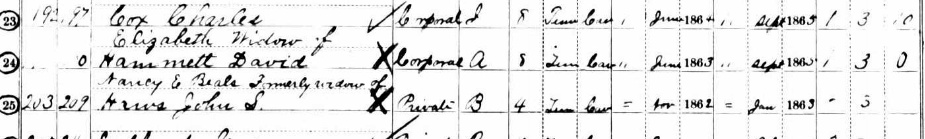 23 192 97 Cox Charles Corporal I 8 Tenn Cav " June 1864 " Sept 1865 1 3 10
Elizabeth Widow of
24 0 Hammett David X Corporal A 8 Tenn Cav " June 1863 " Sept 1865 1 3 0
Nancy E Beals Formerly widow of
25 203 209 Haws John S. X Private B 4 Tenn Cav = Nov 1862 = Jan 1863 - 3